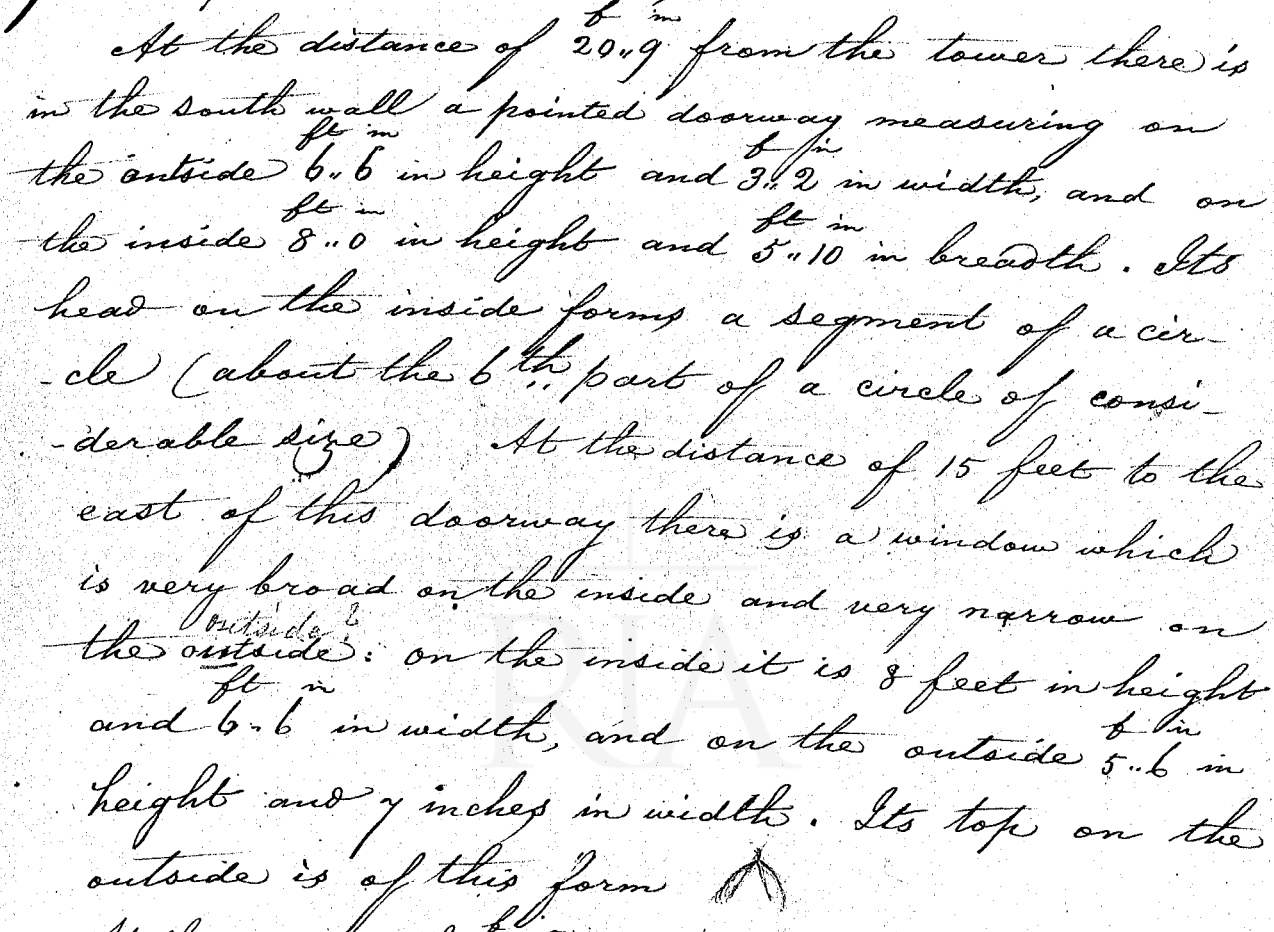 f in
At the distance of 20,,9 from the tower there is
in the south wall a pointed doorway measuring on
ft in f in
the outside 6,,6 in height and 3,,2 in width, and on
ft in ft in
the inside 8,,0 in height and 5,,10 in breadth. Its
head on the inside forms a segment of a cir-
-cle (about the 6th,, part of a circle of consi-
-derable size) At the distance of 15 feet to the
east of this doorway there is a window which
is very broad on the inside and very narrow on
outside?
the outside: on the inside it is 8 feet in height
ft in f in
and 6,,6 in width, and on the outside 5,,6 in
height and 7 inches in width. Its top on the
outside is of this form
RIA